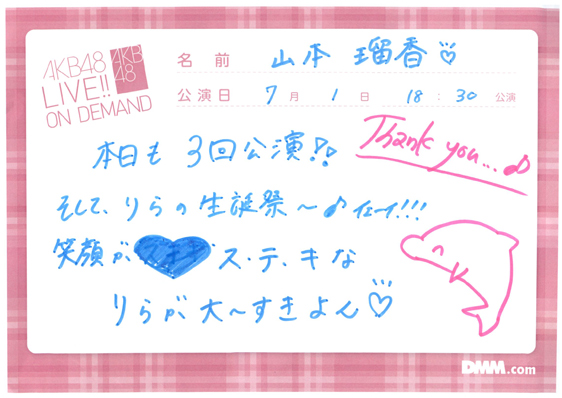 AKB48
LIVE!!
ON DEMAND
AKB
48
名前 山本 瑠香♡
公演日 7月1日 18:30公演
本日も 3回公演!!
Thank you...♪
そして、りらの生誕祭〜♪イェーイ!!!
笑顔が ス、テ、キな
りらが大〜すきよん♡
DMM.com